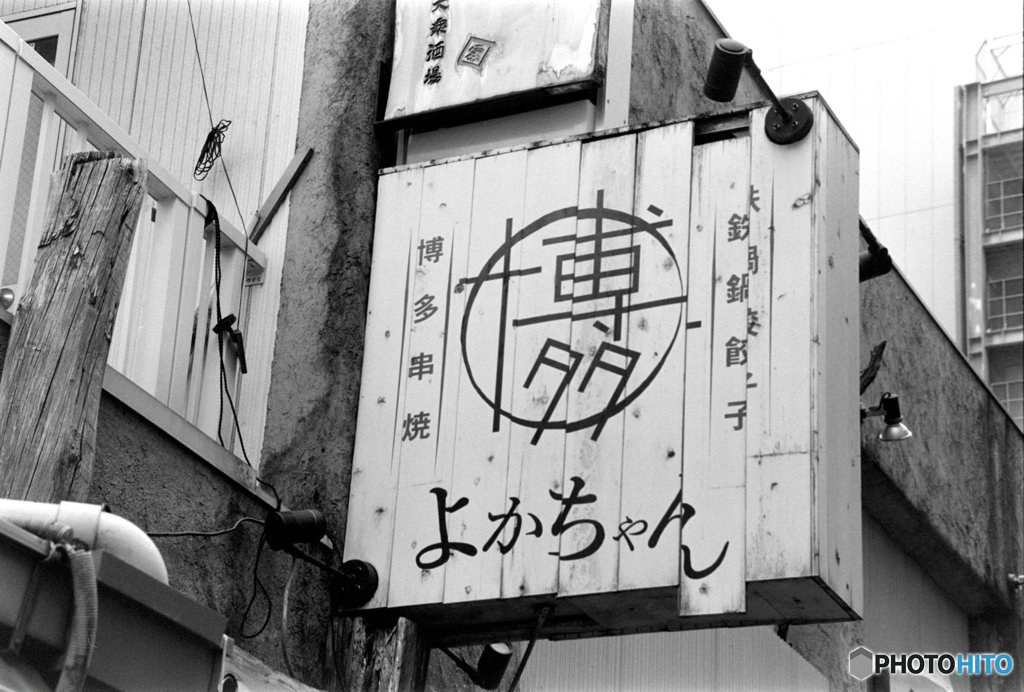 大衆酒場
雲
鉄鍋餃子
博多
博多串焼
よかちゃん
PHOTOHITO